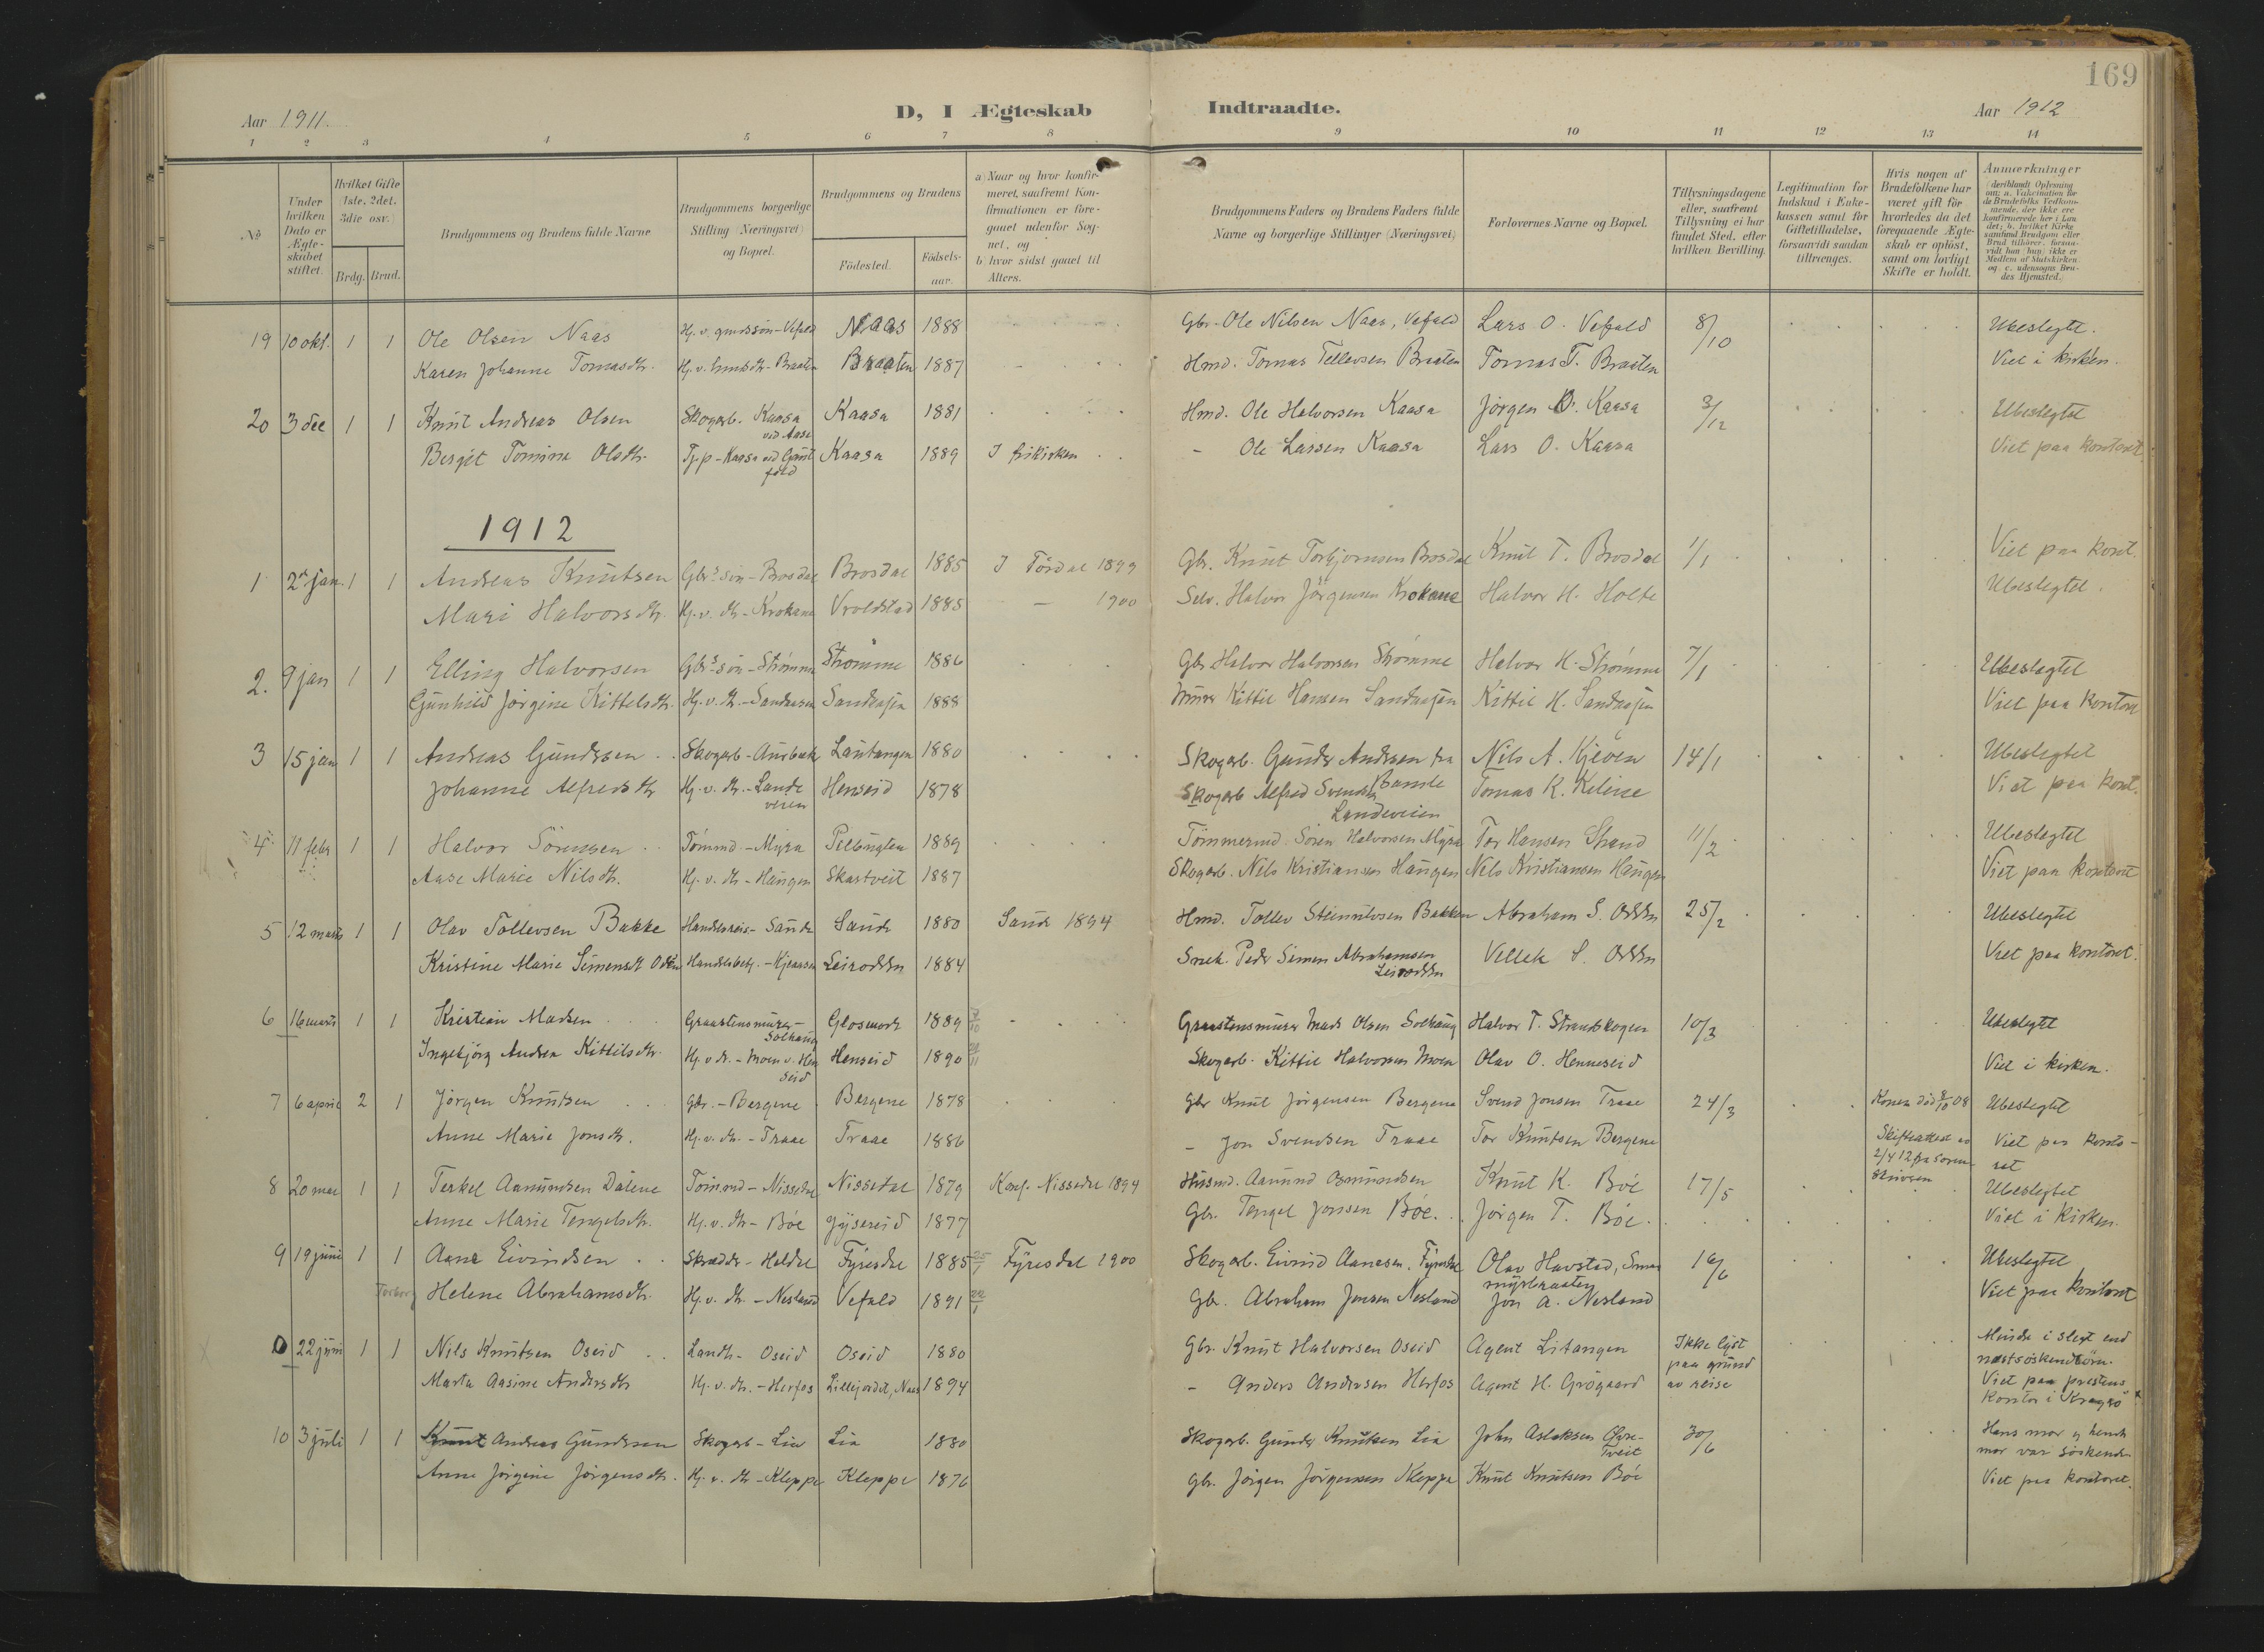 169
Aar 1911.
D, I Ægteskab
Indtraadte.
Aar 1912
1 2 3 4 5 6 7 8 9 10 11 12 13 14
No
Under hvilken Dato er Ægteskabet stiftet.
Hvilket Gifte 1ste, 2det, 3die osv.)
Brdg. Brud.
Brudgommens og Brudens fulde Navne
Brudgommens borgerlige Stilling (Næringsvei) og Bopæl.
Brudgommens og Brudens
Födested.
Födsels-aar.
a) Naar og hvor konfirmeret, saafremt Konfirmationen er foregaaet udenfor Sognet, og
b) hvor sidst gaaet til Alters.
Brudgommens Faders og Brudens Faders fulde Navne og borgerlige Stillinger (Næringsvei)
Forlovernes Navne og Bopæl.
Tillysningsdagene eller, saafremt Tillysning ei har fundet Sted, efter hvilken Bevilling.
Legitimation for Indskud i Enkekassen samt for Giftetilladelse, forsaavidt saadan tiltrænges.
Hvis nogen af Brudefolkene har været gift för, hvorledes da det foregaaende Ægteskab er oplöst, samt om lovligt Skifte er holdt.
Anmærkninger
19 10 okt. 1 1 Ole Olsen Naas Naas 1888 Gbr. Ole Nilsen Naas, Vefald Lars O. Vefald 8/10 Ubeslegtet.
Karen Johanne Tomasdtr. Braaten 1887 Hmd. Tomas Tellevsen Braaten Tomas T. Braaten Viet i kirken.
20 3 dec 1 1 Knut Andreas Olsen Skogarb. Kaasa ved Aase Kaasa 1881 Hmd. Ole Halvorsen Kaasa Jörgen O. Kaasa 3/12 Ubeslegtet
Berget Tomine Olsdtr. Kaasa 1889 I frikirken - Ole Larsen Kaasa Lars O. Kaasa Viet paa kontoret
1912
1 2 jan. 1 1 Andreas Knutsen Gbrs sön - Brosdal Brosdal 1885 I Tördal 1899 Gbr. Knut Torbjornsen Brosdal Knut T. Brosdal 1/1 Viet paa kont.
Mari Halvorsdtr. Hj.v. dtr - Krokane Vroldstad 1885 - 1900 Selv. Halvor Jörgensen Krokane Halvor H. Holte Ubeslegtet.
2. 9 jan 1 1 Elling Halvorsen Gbrs sön - Strömme Strömme 1886 Gbr Halvor Halvorsen Strömme Halvor H. Strömme 7/1 Ubeslegtet
Gunhild Jörgine Kittelsdtr. Hj.v. dtr. - Sandaasen Sandaasen 1888 Murer Kittil Hansen Sandaasen Kittil H. Sandaasen Viet paa kontoret
3 15 jan 1 1 Andreas Gundersen Skogarb - Lautangen 1880 Skogarb. Gunder Andersen fra Bamle Nils A. Kjeven 14/1 Ubeslegtet
Johanne Alfredsdtr Hj.v. dtr. - Landeveien Henseid 1878 Skogarb Alfred Svendsen Landeveien Tomas K. Keline Viet paa kont.
4 11 febr 1 1 Halvor Sörensen Tömmd. - Myra 1889 Tömmermd. Sören Halvorsen Myra Tor Hansen Strand 11/2 Ubeslegtet
Aase Marie Nilsdtr. Hj.v. dtr - Haugen Skartveit 1887 Skogarb. Nils Kristiansen Haugen Nils Kristiansen Haugen Viet paa kontoret
5 12 marts 1 1 Olav Tollevsen Bakke Handelsreis - Sande Sande 1880 Sande 1894 Hmd. Tollev Steinulvsen Bakken Abraham S. Odden 25/2 Ubeslegtet
Kristine Marie Simensdt Odden Handelsbetj. - Leirodden 1884 Snek. Peder Simen Abrahamsen Leirodden Vellek S. Odden Viet paa kontoret.
6 16 marts 1 1 Kristian Madsen Graastensmurer - Solhaug Glosmork 1889 Graastensmurer Mads Olsen Solhaug Halvor T. Strandskogen 10/3 Ubeslegtet
Ingebjörg Andrea Kittilsdtr. Hj.v.dr. - Moen v. Henseid Henseid 1890 Skogarb. Kittil Halvorsen Moen Olav O. Henneseid Viet i kirken.
7 6 april 2 1 Jörgen Knutsen Gbr. - Bergene Bergene 1878 Gbr Knut Jörgensen Bergene Svend Jonsen Traae 24/3 Konen död 8/10 08 Ubeslegtet
Anne Marie Jonsdtr. Hj.v. dtr. - Traae Traae 1886 - Jon Svendsen Traae Tor Knutsen Bergene Skifteattest av 2/4 12 fra sorenskriveren Viet paa kontoret
8 20 mai 1 1 Terkel Aanundsen Dalene Tömmd - Nissedal Nissedal 1879 Konf. Nissedal 1894 Husmd. Aanund Osmundsen Knut K. Böe 17/5 Ubeslegtet
Anne Marie Tengelsdtr. Hj.v. dtr - Böe 1877 Gbr. Tengel Jonsen Böe. Jörgen T. Böe. Viet i kirken.
9 19 juni 1 1 Aane Eivindsen Skrædder - Holdal Fyresdal 1885 25/1 Fyresdal 1900 Skogarb. Eivind Aanesen, Fyresdal Olav Havstad, 16/6 Ubeslegtet
Torborg Helene Abrahamsdtr. Hj.v. dtr. - Nesland Vefald 1891 22/1 Gbr. Abraham Jensen Nesland Jon A. Nesland Viet paa kontoret
22 juni 1 1 Nils Knutsen Oseid Landh - Oseid Oseid 1880 Gbr. Knut Halvorsen Oseid Agent Litangen Ikke lyst paa grund av reise Mindre i slegt end næstsöskendbörn.
Marta Aasine Andersdtr Hj.v. dtr. - Herfos Lillejordet, Naas 1894 - Anders Andersen Herfos Agent H. Grögaard Viet paa prestens kontor i Kragerö
10 3 juli 1 1 Knut Andreas Gundersen Skogarb - Lia Lia 1880 Skogarb. Gunder Knutsen Lia John Aslaksen 30/6 Hans mor og hendes mor var söskende
Anne Jörgine Jörgensdtr. Hj.v. dtr - Kleppe Kleppe 1876 Gbr. Jörgen Jörgensen Kleppe Knut Knutsen Böe Viet paa kontoret.